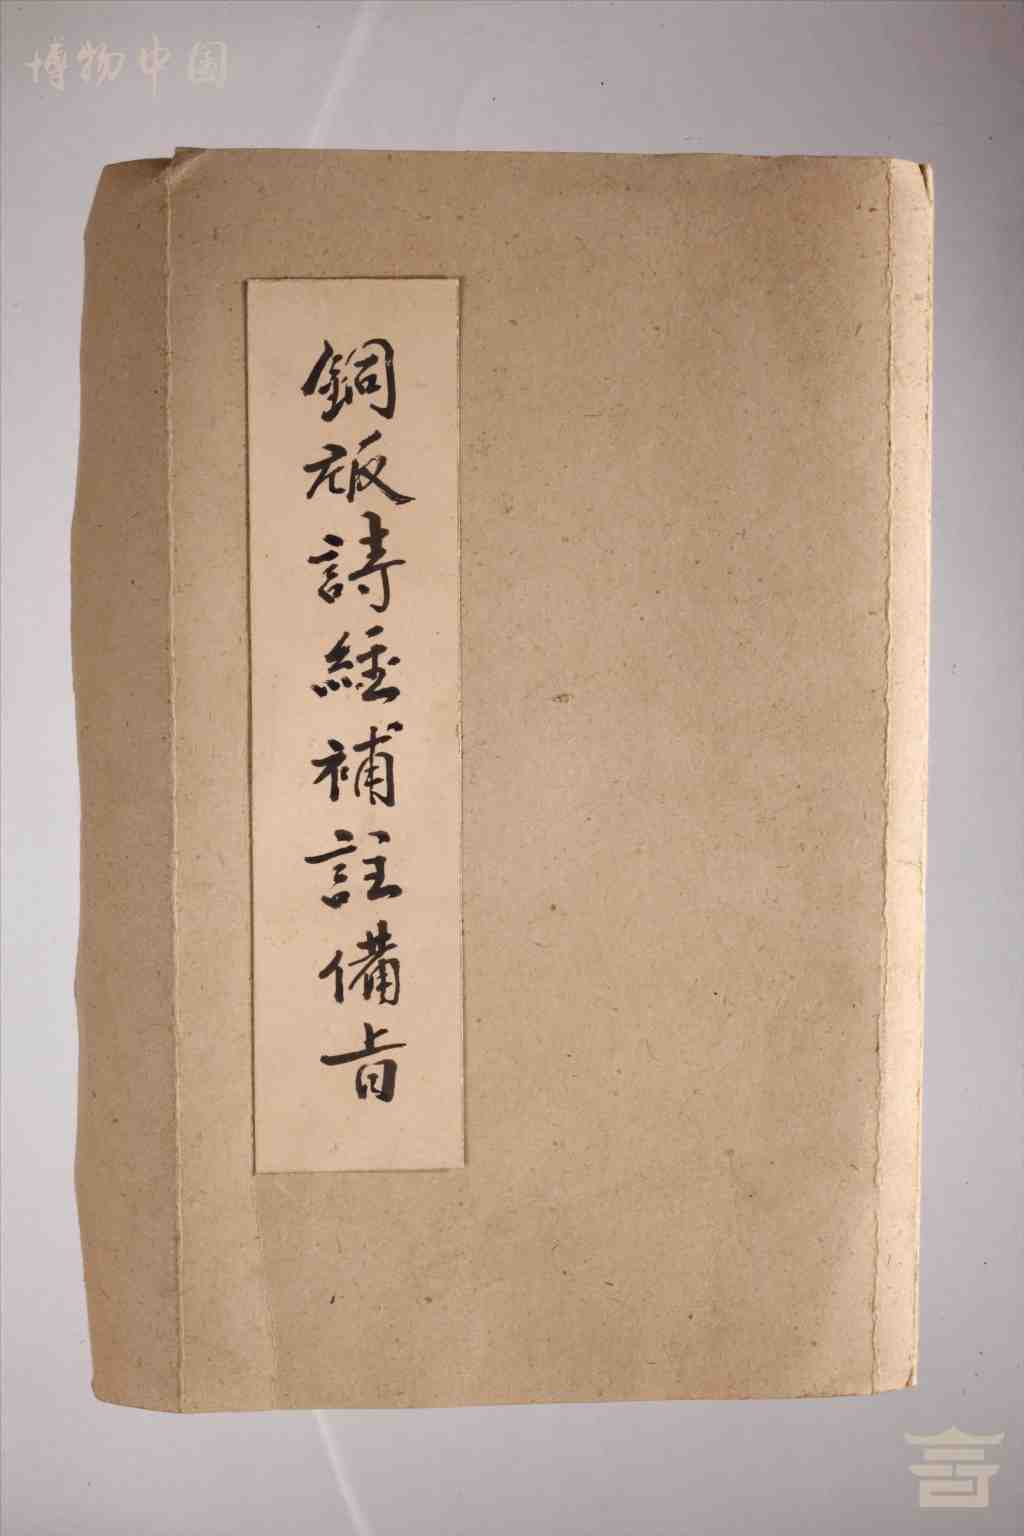 博物中国
銅版詩經補註備旨